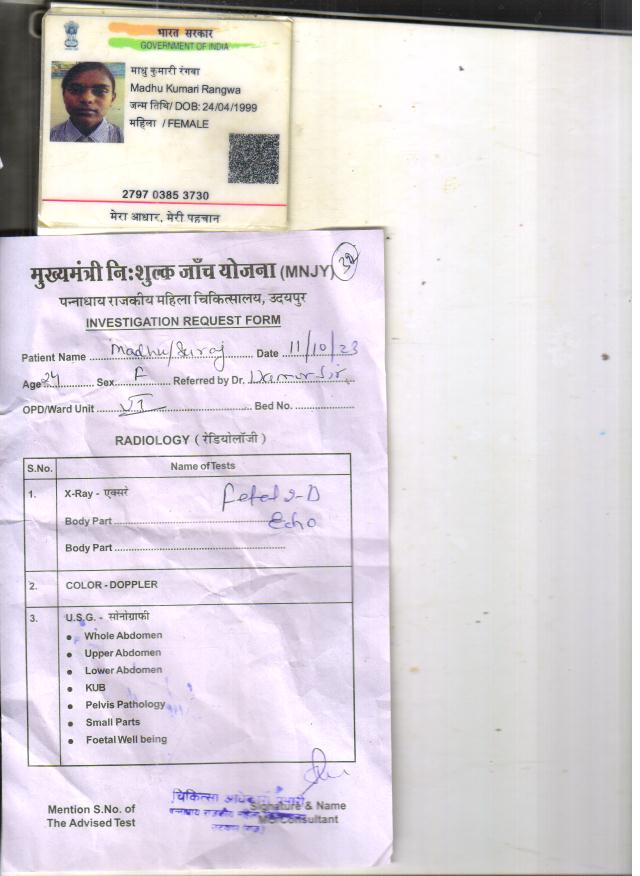 भारत सरकार
GOVERNMENT OF INDIA
माधु कुमारी रंगवा
Madhu Kumari Rangwa
जन्म तिथि/ DOB: 24/04/1999
महिला / FEMALE
2797 0385 3730
मेरा आधार, मेरी पहचान
मुख्यमंत्री निःशुल्क जाँच योजना (MNJY)
पन्नाधाय राजकीय महिला चिकित्सालय, उदयपुर
INVESTIGATION REQUEST FORM
Patient Name Madhu/Suraj Date 11/10/23
Age 24 Sex F Referred by Dr. Sir
OPD/Ward Unit VI Bed No.
RADIOLOGY ( रेडियोलॉजी )
S.No. Name of Tests
1. X-Ray - एक्सरे Fetal 2-D
Body Part Echo
Body Part
2. COLOR - DOPPLER
3. U.S.G. - सोनोग्राफी
● Whole Abdomen
● Upper Abdomen
● Lower Abdomen
● KUB
● Pelvis Pathology
● Small Parts
● Foetal Well being
चिकित्सा
Mention S.No. of Signature & Name
The Advised Test MO Consultant